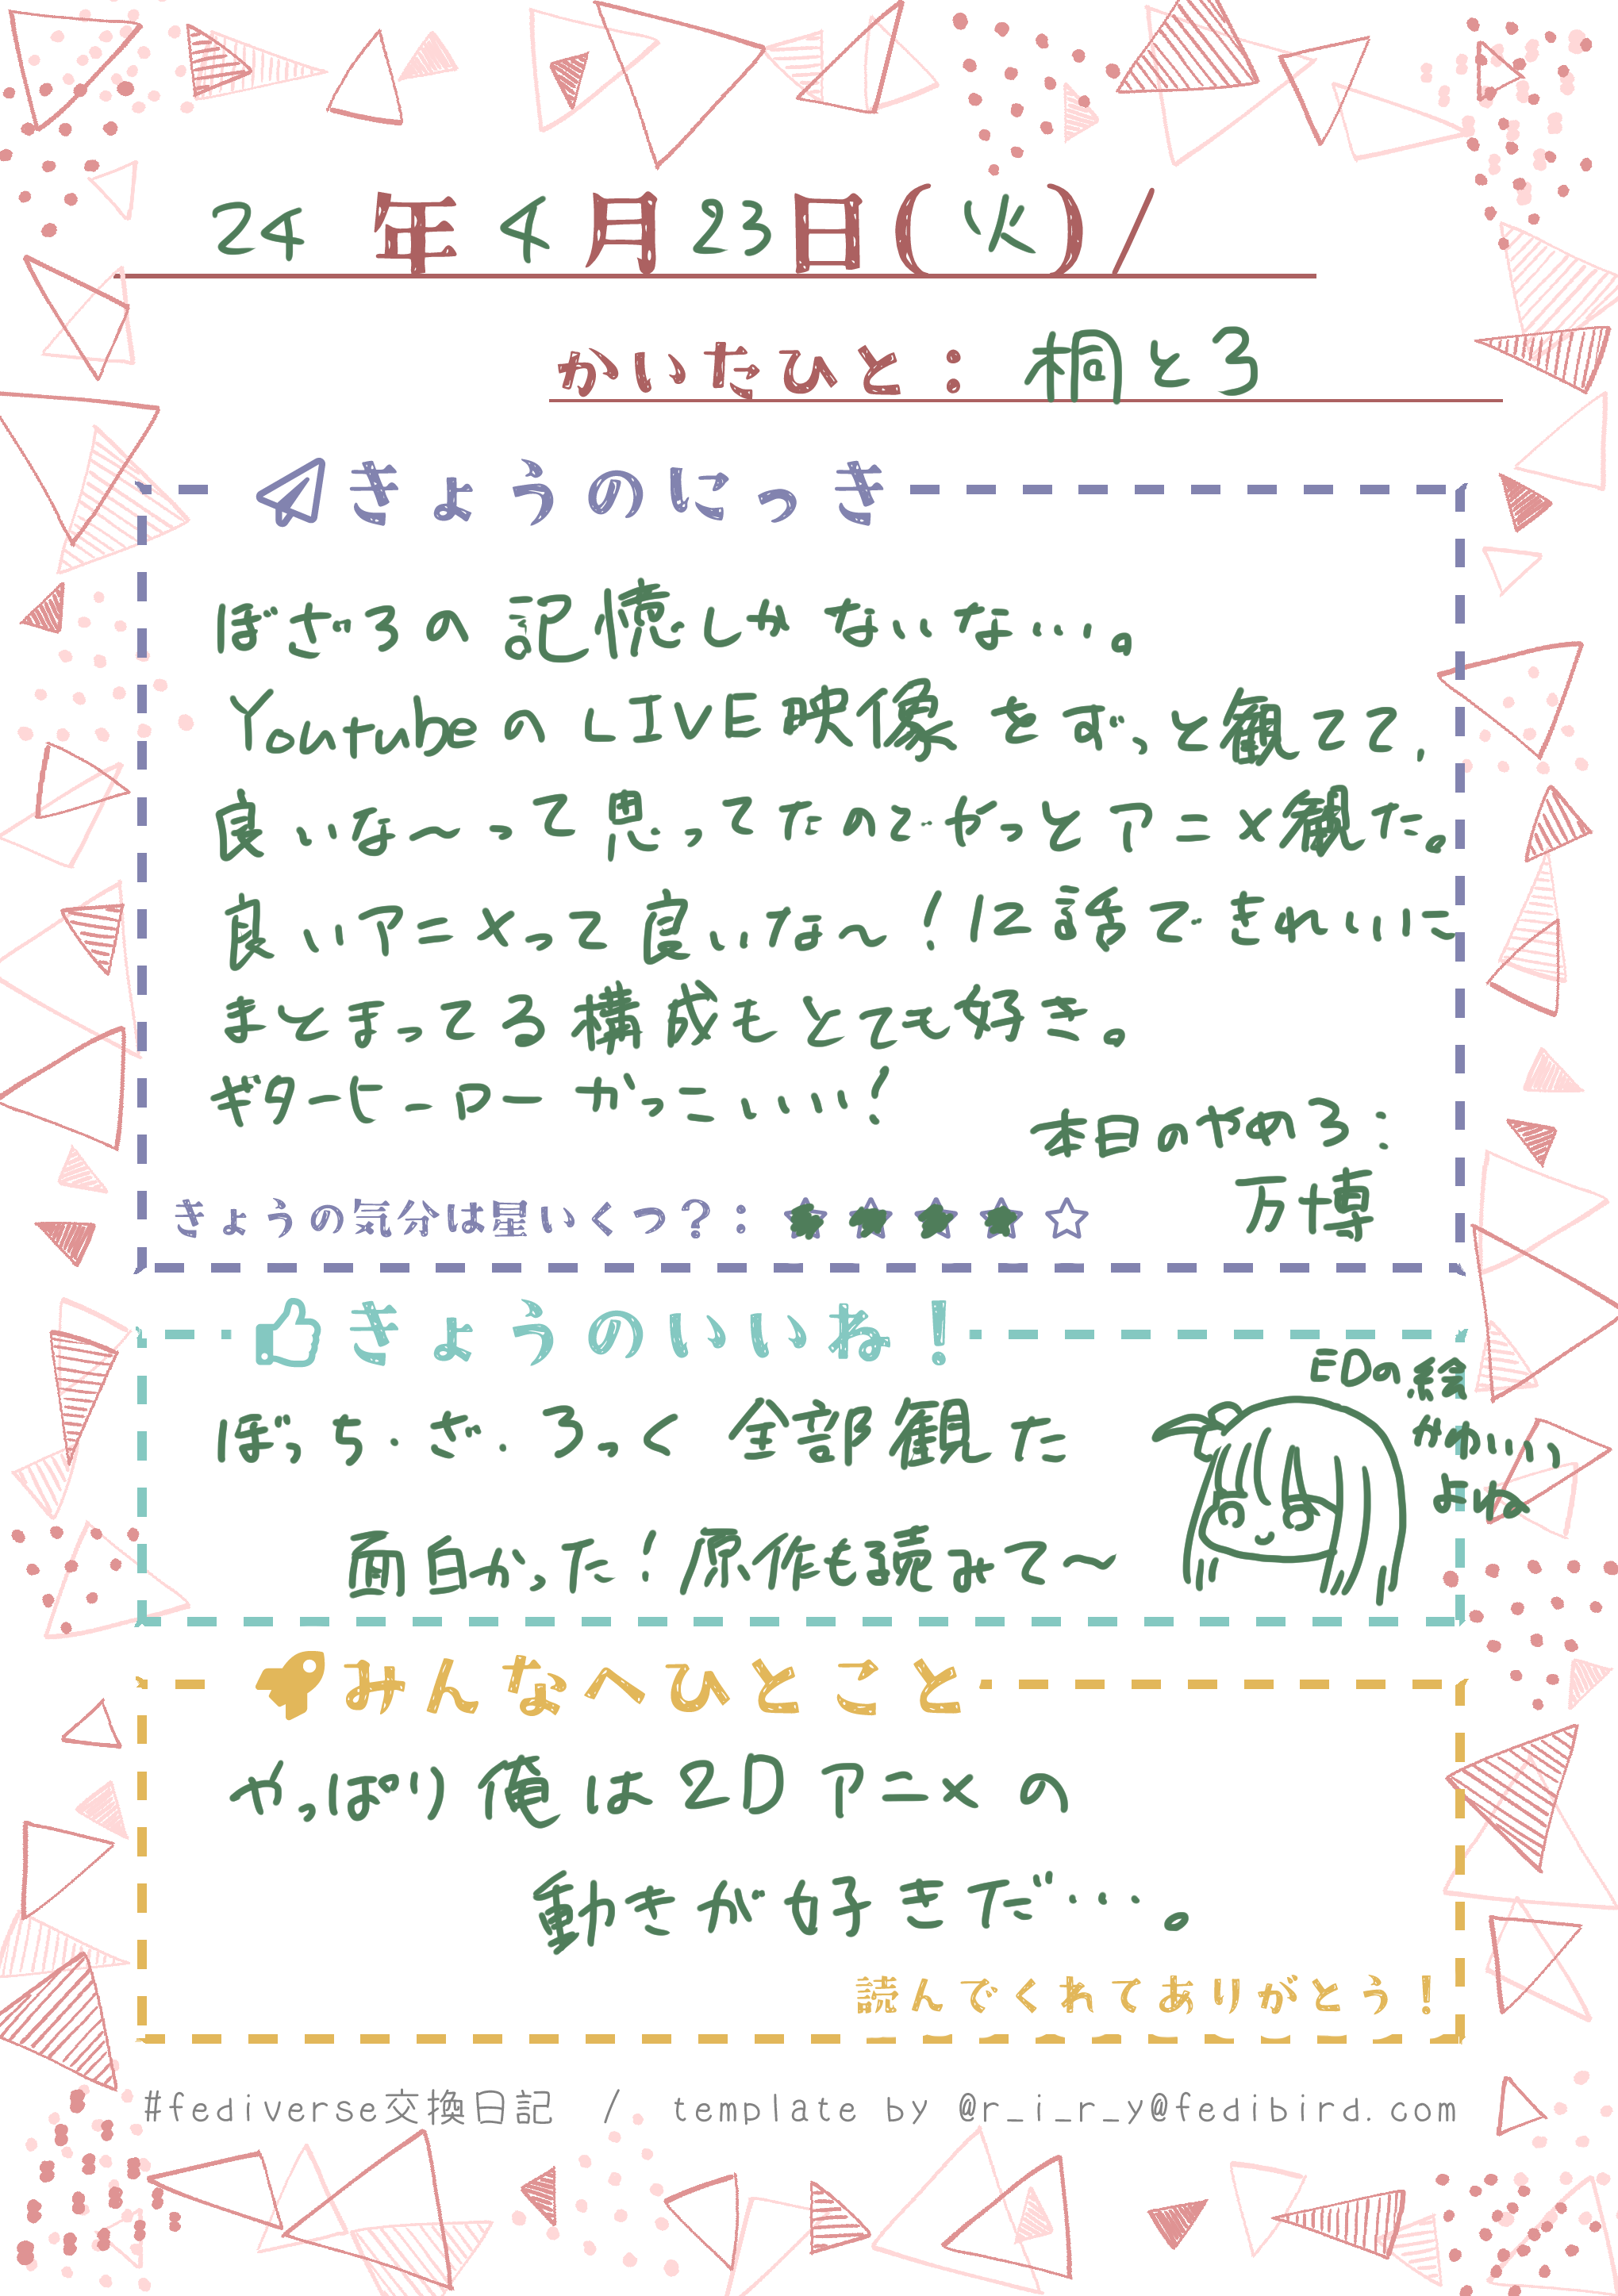 24年4月23日(火)/
かいたひと：桐とろ
きょうのにっき
ぼざろの記憶しかないな…。
YoutubeのLIVE映像をずっと観てて、
良いな〜って思ってたのでやっとアニメ観た。
良いアニメって良いな〜！12話できれいに
まとまってる構成もとても好き。
ギターヒーローかっこいいい！
本日のやめろ：
万博
きょうの気分は星いくつ？：★★★★☆
きょうのいいね！
ぼっち・ざ・ろっく全部観た
面白かった！原作も読みて〜
EDの絵
かわいい
よね
みんなへひとこと
やっぱり俺は2Dアニメの
動きが好きだ…。
読んでくれてありがとう！
#fediverse交換日記 / template by @r_i_r_y@fedibird.com